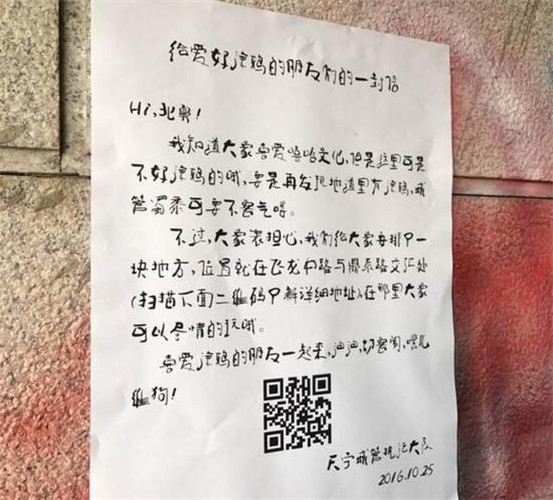 给爱好涂鸦的朋友们的一封信
Hi,北鼻!
我知道大家喜爱嘻哈文化,但是这里可是
不好涂鸦的哦,要是再发现地道里有涂鸦,城
管蜀黍可要不客气喽。
不过,大家表担心,我们给大家安排了一
块地方,位置就在飞龙中路与路交汇处
(扫描下面二维码了解详细地址),在那里大家
可以尽情的玩哦。
喜爱涂鸦的朋友一起来,油油,切客闹,喂儿
维狗!
天宁城管执法大队
2016.10.25